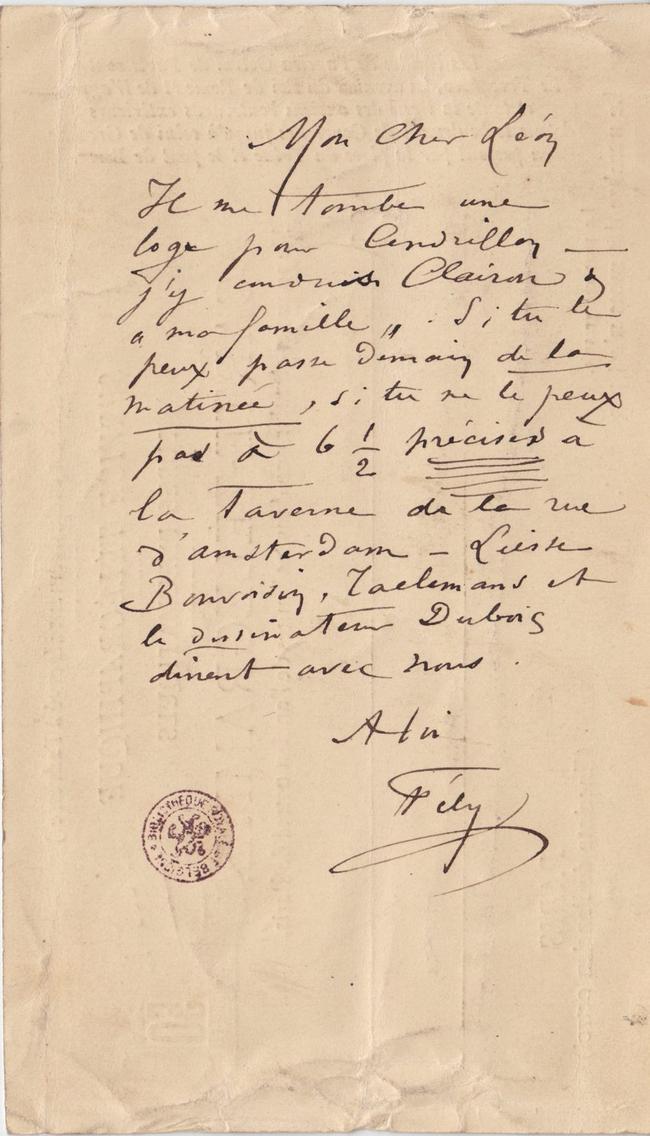 Mon cher Léon
Il me tombe une
loge pour Cendrillon —
j'y conduis Clairon &
a ma famille „ . Si tu le
peux passe demain de la
matinée, si tu ne le peux
pas à 6 1/2 précises à
la Taverne de la rue
d'amsterdam – Liesse
Bonvoisin, Taelemans et
le dessinateur Dubois
dinent avec nous.
A toi
Fély
BIBLIOTHÈQUE ROYALE DE BELGIQUE